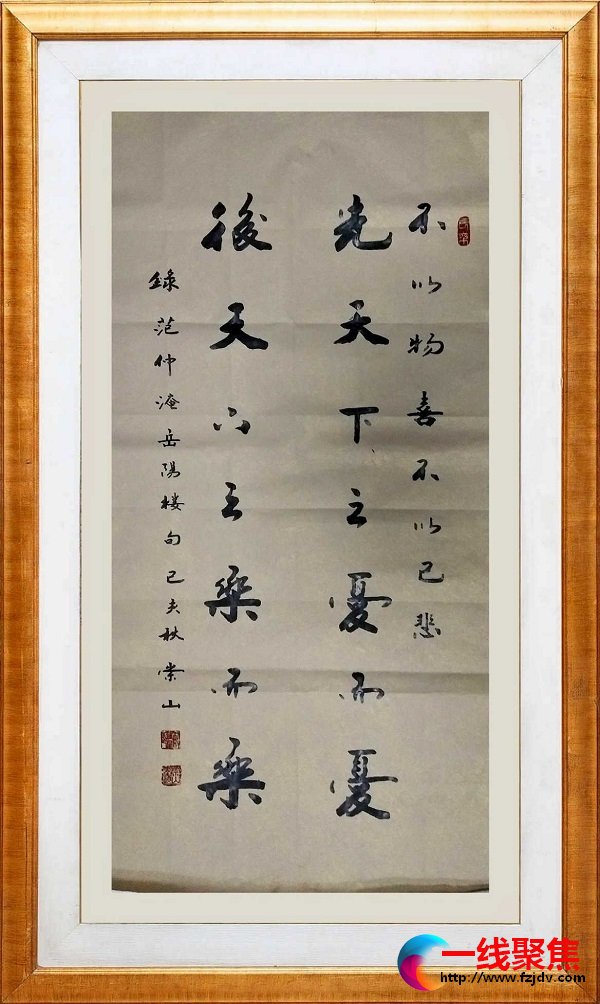 不以物喜不以己悲
先天下之憂而憂
後天下之樂而樂
錄范仲淹岳陽楼句己亥秋崇山
一线聚焦
http://www.fzjdv.com